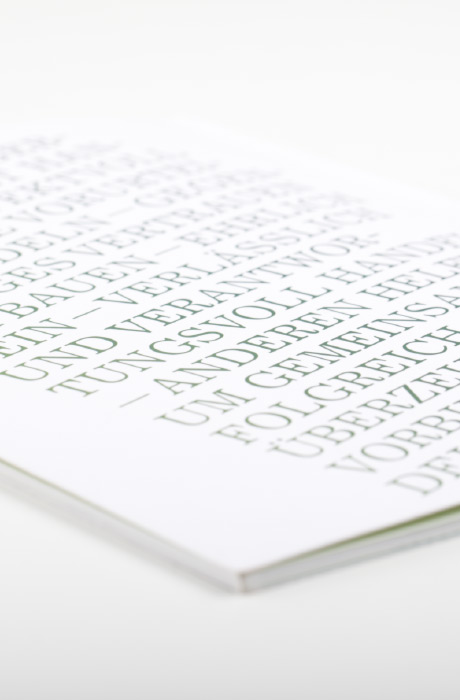 DELN — GEGEN-
GES VERTRAUEN
BAUEN — EHRLICH
EIN — VERLÄSSLICH
UND VERANTWOR-
TUNGSVOLL HANDE
— ANDEREN HELF
UM GEMEINSA
FOLGREICH
ÜBERZEU
VORBI
DE